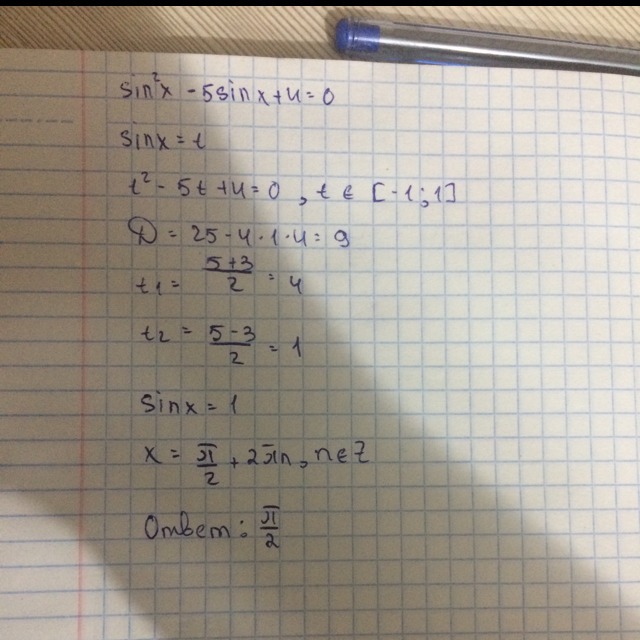 sin²x - 5sinx + 4 = 0
sinx = t
t² - 5t + 4 = 0 , t ∈ [-1; 1]
D = 25 - 4 · 1 · 4 = 9
t₁ = (5+3)/2 = 4
t₂ = (5-3)/2 = 1
sinx = 1
x = π/2 + 2πn, n∈Z
Ответ: π/2